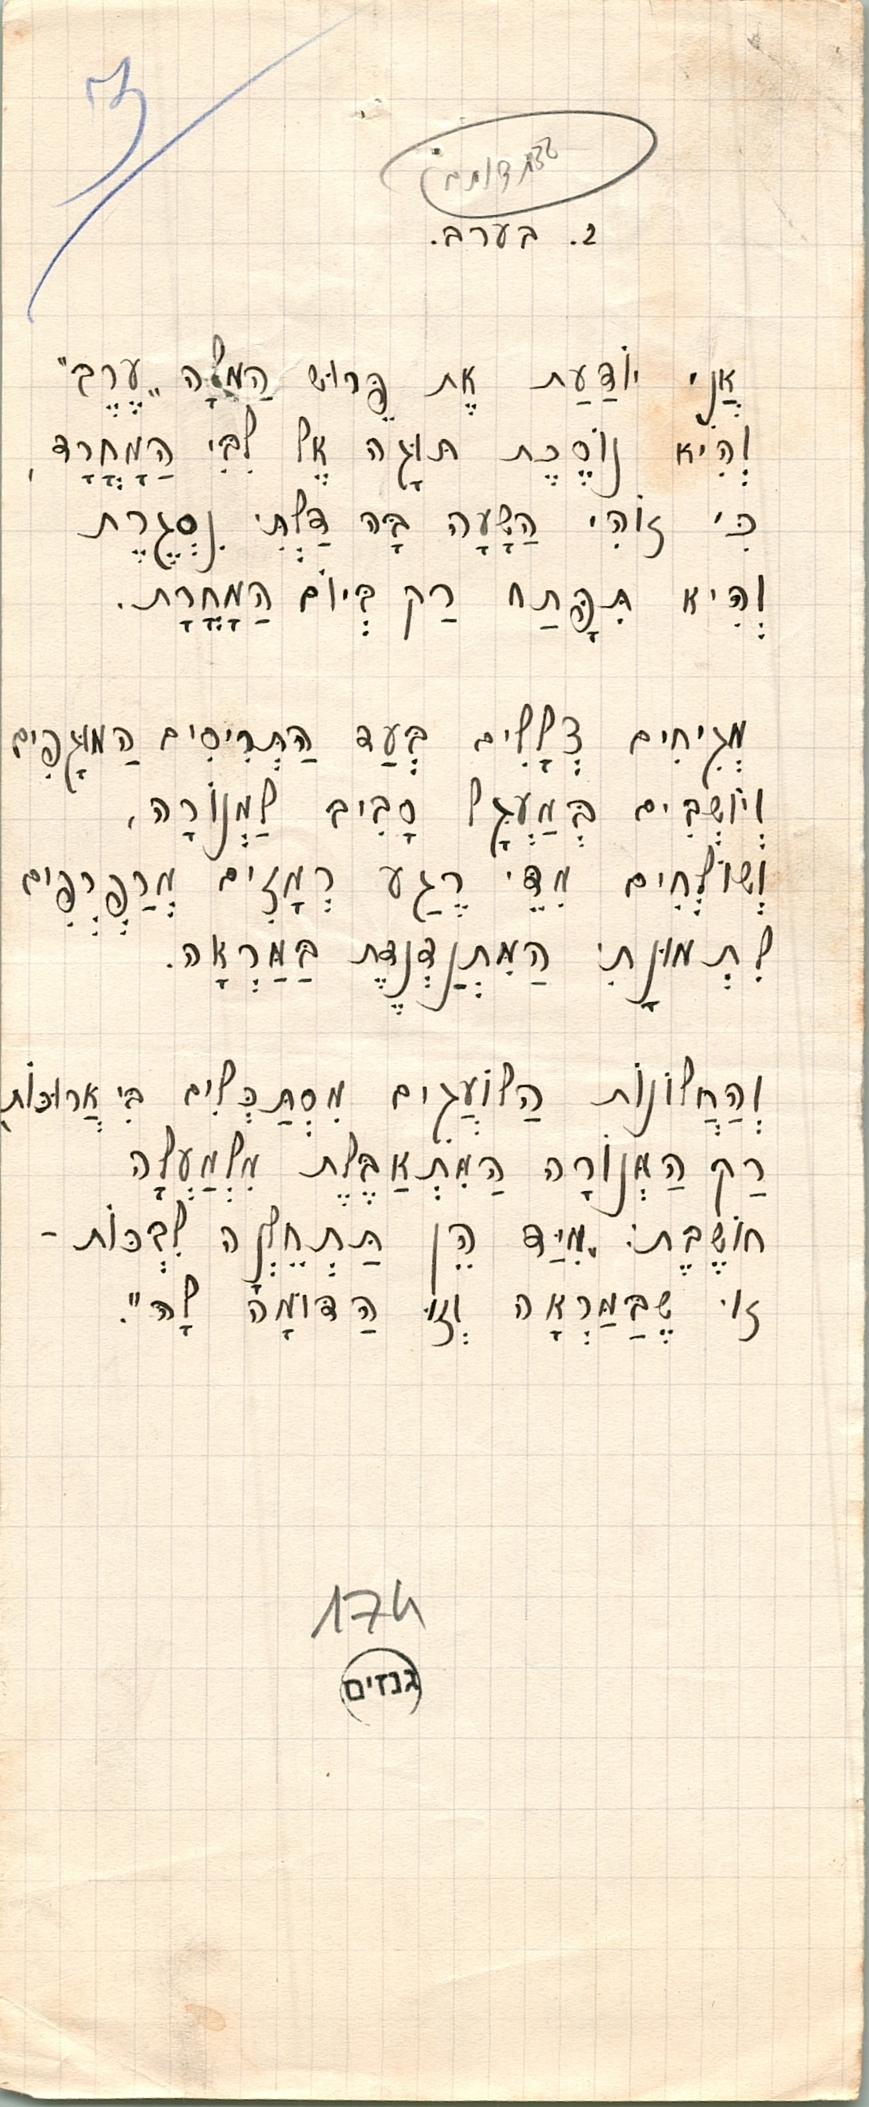 2. בערב.
אֲנִי יוֹדַעַת אֶת פֵּרוּשׁ הַמִּלָּה „עֶרֶב"
וְהִיא נוֹסֶכֶת תּוּגָה אֶל לִבִּי הַמָּחֳרָד,
כִּי זוֹהִי הַשָּׁעָה בָּהּ דַּלְתִּי נִסְגֶּרֶת
וְהִיא תִּפָּתַח רַק בְּיוֹם הַמָּחֳרָת.
מְגִיחִים צְלָלִים בְּעַד הַתְּרִיסִים הַמּוּגָפִים
וְיוֹשְׁבִים בְּמַעְגָּל סָבִיב לַמְּנוֹרָה,
וְשׁוֹלְחִים מִדֵּי רֶגַע רְמָזִים מְרַפְרְפִים
לִתְמוּנָתִי הַמִּתְנַדְנֶדֶת בַּמַּרְאָה.
וְהַחֲלוֹנוֹת הַלּוֹעֲגִים מִסְתַּכְּלִים בִּי אֲרוּכּוֹת
רַק הַמְּנוֹרָה הַמִּתְאַבֶּלֶת מִלְמַעְלָה
חוֹשֶׁבֶת: „מִיַּד הֵן תַּתְחֵלְנָה לִבְכּוֹת -
זוֹ שֶׁבַּמַּרְאָה וְזוֹ הַדּוֹמָה לָהּ".
174
גנזים